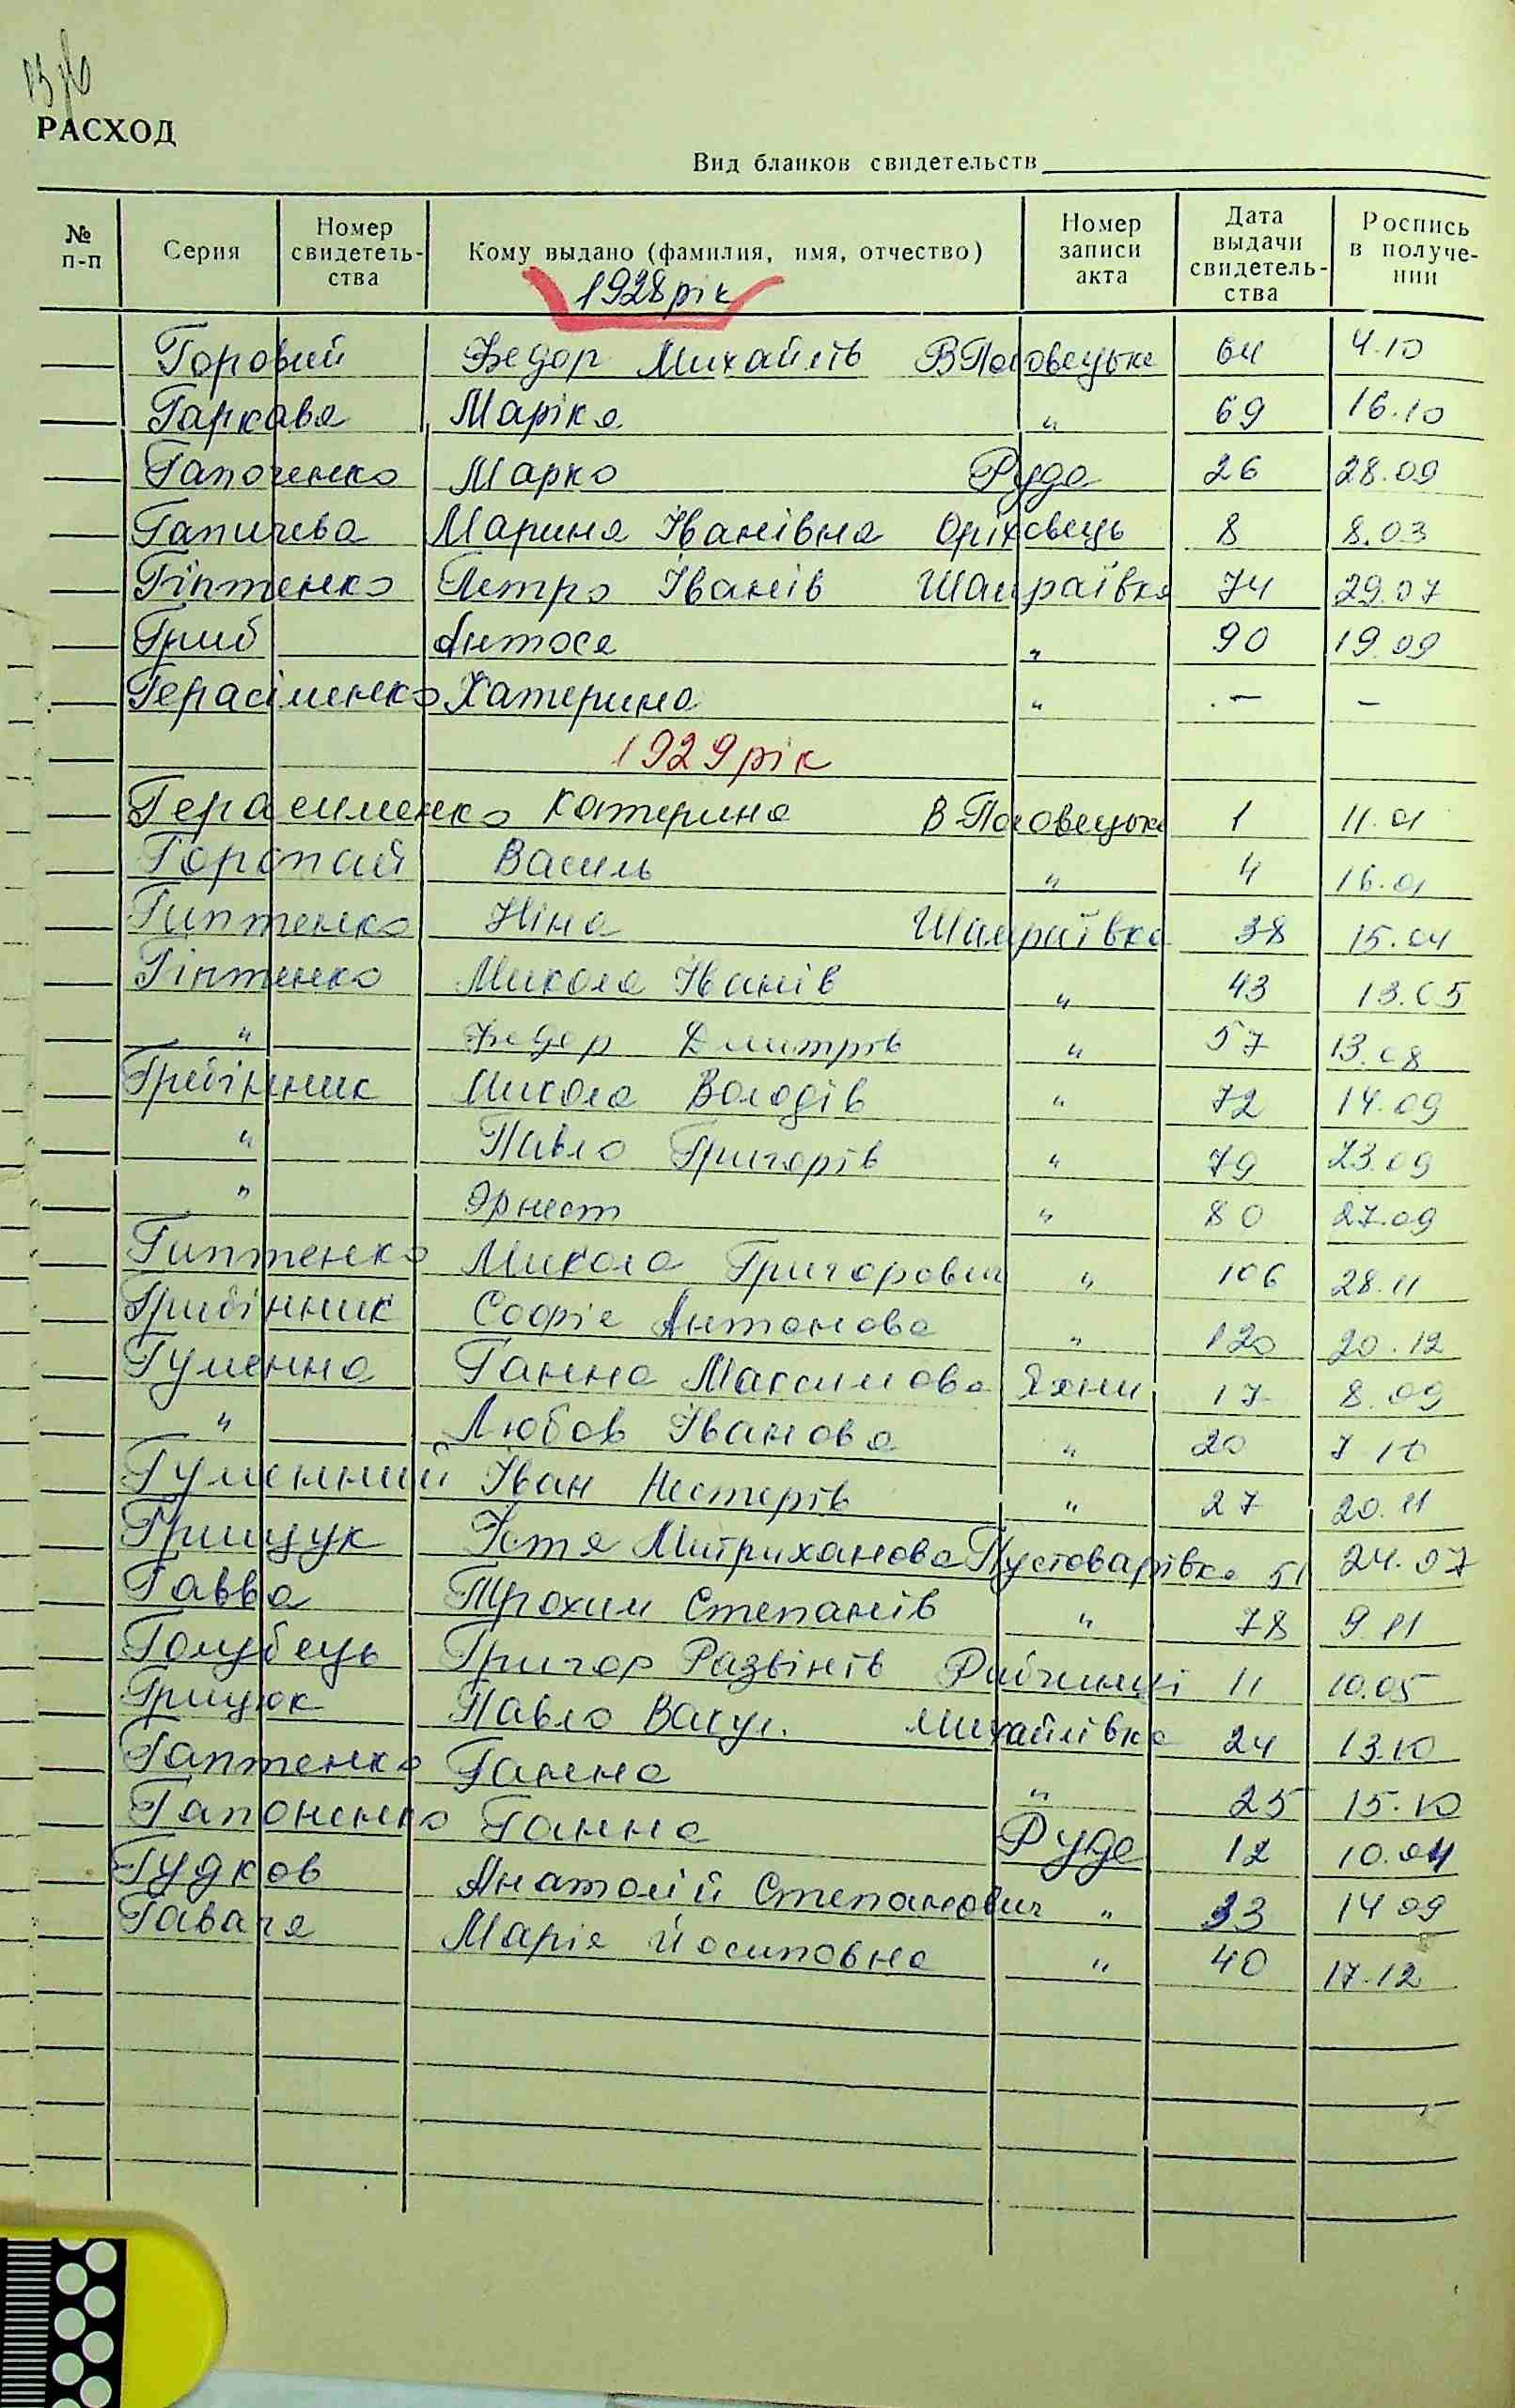 РАСХОД
Вид бланков свидетельств
№ п-п Серия Номер свидетель-ства Кому выдано (фамилия, имя, отчество) Номер записи акта Дата выдачи свидетель-ства Роспись в получе-нии
1928 рік
Горовий Федор Михайлів В Половецьке 64 4.10
Гаркава Маріка " 69 16.10
Гапоченко Марко Руда 26 28.09
Гапичева Марина Іванівна Оріховець 8 8.03
Гіптенко Петро Іванів Шамраївка 74 29.07
Гриб Антося " 90 19.09
Герасіменко Катерина " - -
1929 рік
Герасименко Катерина В Половецьке 1 11.01
Горопай Василь " 4 16.01
Гиптенко Ніна Шамраївка 38 15.04
Гіптенко Микола Іванів " 43 13.05
" Федор Дмитрів " 57 13.08
Гребінник Микола Володів " 72 14.09
" Павло Григорів " 79 23.09
" Эрнест " 80 27.09
Гиптенко Микола Григорович " 106 28.11
Грибінник Софіє Антонова " 120 20.12
Гуменна Ганна Максимова Яхни 17 8.09
" Любов Іванова " 20 7 10
Гуменний Іван Нестерів " 27 20.11
Грищук Устя Митриханова Пустоварівка 51 24.07
Гавва Трохим Степанів " 78 9.11
Голубець Григор Развінів Рибчинці 11 10.05
Грицюк Павло Вакул. Михайлівка 24 13.10
Гаптенко Ганна " 25 15.10
Гапоненко Ганна Руда 12 10.04
Гудков Анатолій Степанович " 33 14 09
Гаваге Маріе Йосиповна " 40 17.12